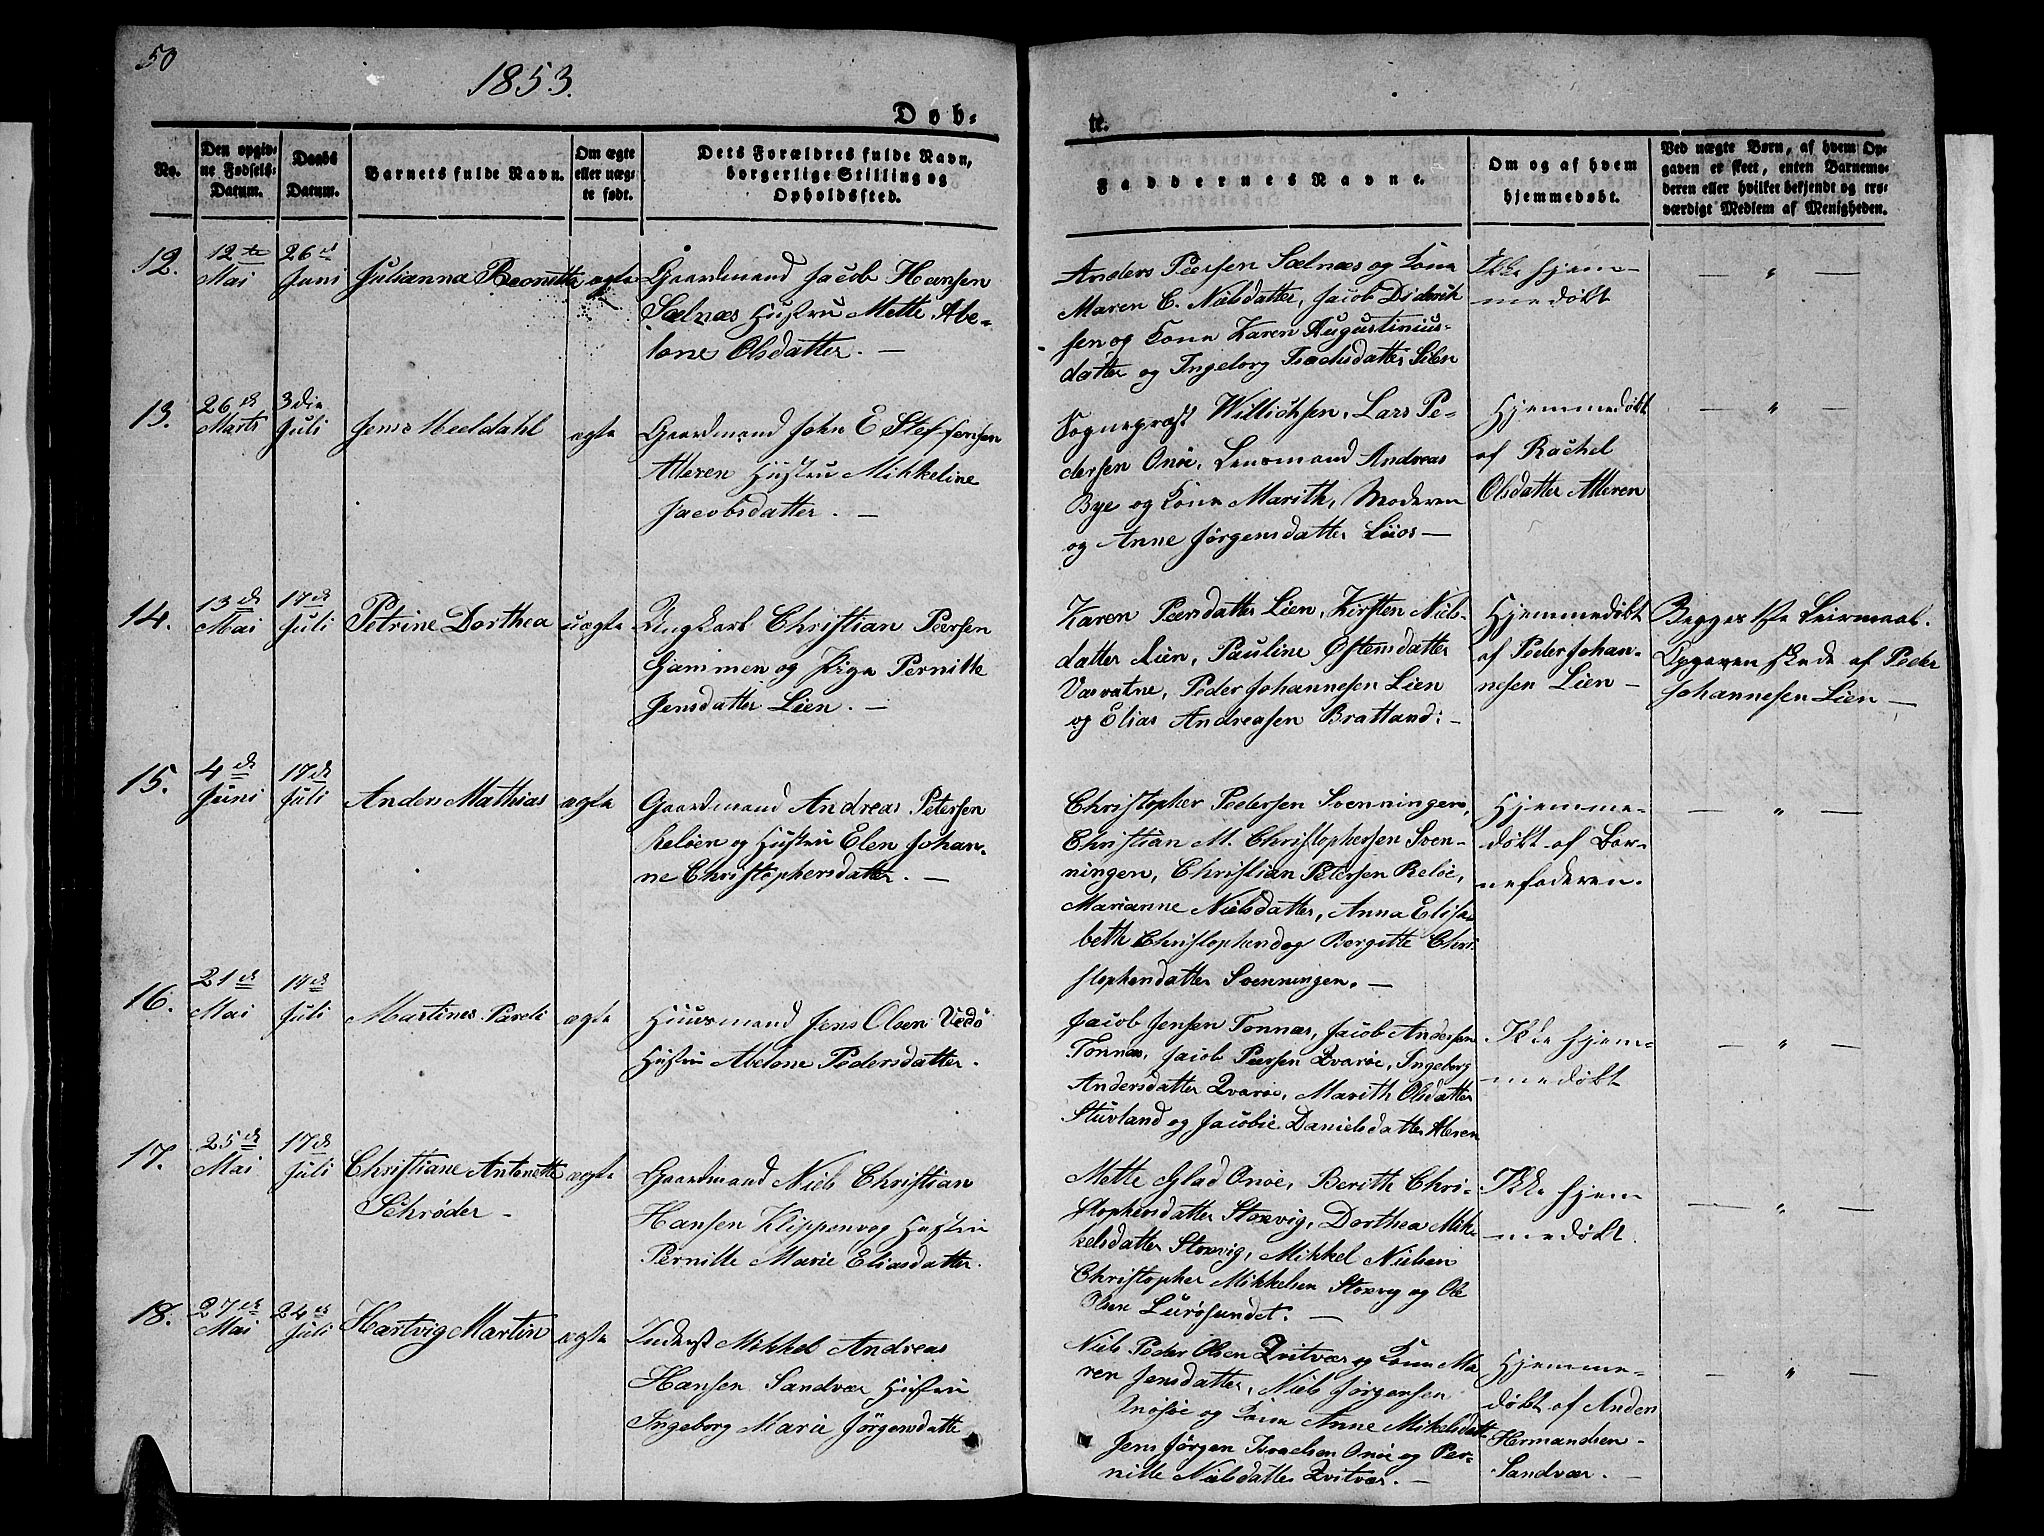 50
1853.
Døb-
te.
No.
Den opgiv-
ne Fødsels-
Datum.
Daabs
Datum.
Barnets fulde Navn.
Om ægte
eller uæg-
te født.
Dets Forældres fulde Navn,
borgerlige Stilling og
Opholdssted.
Faddernes Navne.
Om og af hvem
hjemmedøbt.
Ved uægte Børn, af hvem Op-
gaven er skeet, enten Barnemo-
deren eller hvilket bekjendt og tro-
værdigt Medlem af Menigheden.
12.
12te
Mai
26d
Juni
Julianna
ægte
Gaardmand Jacob Hansen
Selnæs Hustru Mette Abe-
lone Olsdatter. —
Anders Peersen Selnæs og Kone
Maren C. Nielsdatter, Jacob Diderik
sen og Kone Karen Augustinius-
datter og Ingeborg Isachsdatter Silen
Ikke hjem-
medøbt
— " —
13.
26d
Marts
3die
Juli
Jens Meeldahl
ægte
Gaardmand John E. Steffensen
Alteren Hustru Mikkeline
Jacobsdatter. —
Sognepræst Willichsen, Lars Pe-
dersen Onøe, Lensmand Andreas
Bye og Kone Marith, Moderen
og Anne Jørgensdatter Liios —
Hjemmedøbt
af Rachel
Olsdatter Alteren
— " —
14.
13d
Mai
17d
Juli
Petrine Dorthea
uægte
Ungkarl Christian Peersen
Gammen og Pige Pernille
Jensdatter Lien. —
Karen Peersdatter Lien, Kirsten Niels-
datter Lien, Pauline Østensdatter
Værvatne, Peder Johannesen Lien
og Elias Andreasen Bratland: —
Hjemmedøbt
af Peder Johan-
nesen Lien —
Begges 1ste Leiermaal.
Opgaven skede af Peder
Johannesen Lien —
15.
4d
Juni
17d
Juli
Anders Mathias
ægte
Gaardmand Andreas Petersen
Reløen og Hustru Elen Johan-
ne Christophersdatter. —
Christopher Pedersen Svenningen,
Christian M. Christophersen Sven-
ningen, Christian Petersen Reløe,
Marianne Nielsdatter, Anna Elisa-
beth Christophersd og Bergitte Chri-
stophersdatter Svenningen. —
Hjemme-
døbt af Bar-
nefaderen.
— " —
16.
21d
Mai
17d
Juli
Martines Pareli
ægte
Huusmand Jens Olsen Vedø
Hustru Abelone Pedersdatter.
Jacob Jensen Tonnæs, Jacob Andersen
Tonnæs, Jacob Peersen Qvarøe, Ingeborg
Andersdatter Qvarøe, Marith Olsdatter
Stuvland og Jacobie Danielsdatter Alteren
Ikke hjem-
medøbt
— " —
17.
25d
Mai
17d
Juli
Christiane Antonette
Schrøder —
ægte
Gaardmand Niels Christian
Hansen Klippenvog Hustru
Pernille Marie Eliasdatter.
Mette Glad Onøe, Berith Chri-
stophersdatter Storvig, Dorthea Mik-
kelsdatter Storvig, Mikkel Nielsen
Christopher Mikkelsen Storvig og Ole
Olsen Lurøsundet. —
Ikke hjem
medøbt.
— " —
18.
27d
Mai
24d
Juli
Hartvig Martin
ægte
Inderst Mikkel Andreas
Hansen Sandvær Hustru
Ingeborg Marie Jørgensdatte
Niels Peder Olsen Qvitvær og Kone Ma-
ren Jensdatter, Niels Jørgensen
og Kone Anne Mikelsdatt
Jens Jørgen Israelsen Onøe og Per-
nille Nielsdatter Qvitvær. —
Hjemme-
døbt af Anders
Hermandsen
Sandvær. —
— " —